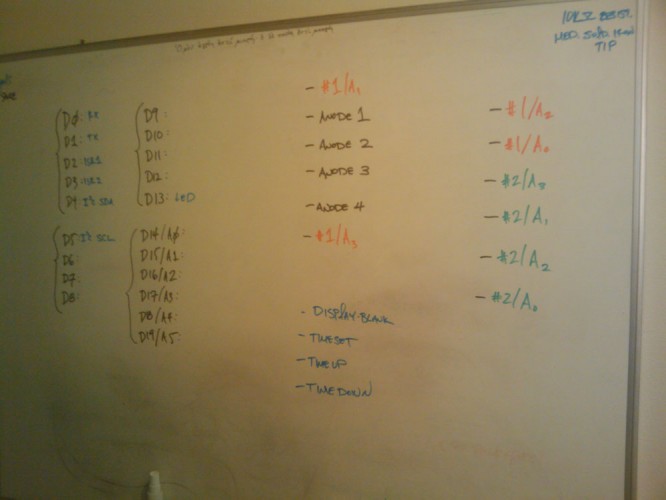 10K Ω RESIST.
MED. SOLD. IRON
TIP
D0: RX
D1: TX
D2: ISR1
D3: ISR2
D4: I²C SDA
D5: I²C SCL
D6:
D7:
D8:
D9:
D10:
D11:
D12:
D13: LED
D14/A0:
D15/A1:
D16/A2:
D17/A3:
D8/A4:
D19/A5:
- #1/A1
- ANODE 1
- ANODE 2
- ANODE 3
- ANODE 4
- #1/A3
- DISPLAY-BLANK
- TIMESET
- TIMEUP
- TIMEDOWN
- #1/A2
- #1/A0
- #2/A3
- #2/A1
- #2/A2
- #2/A0